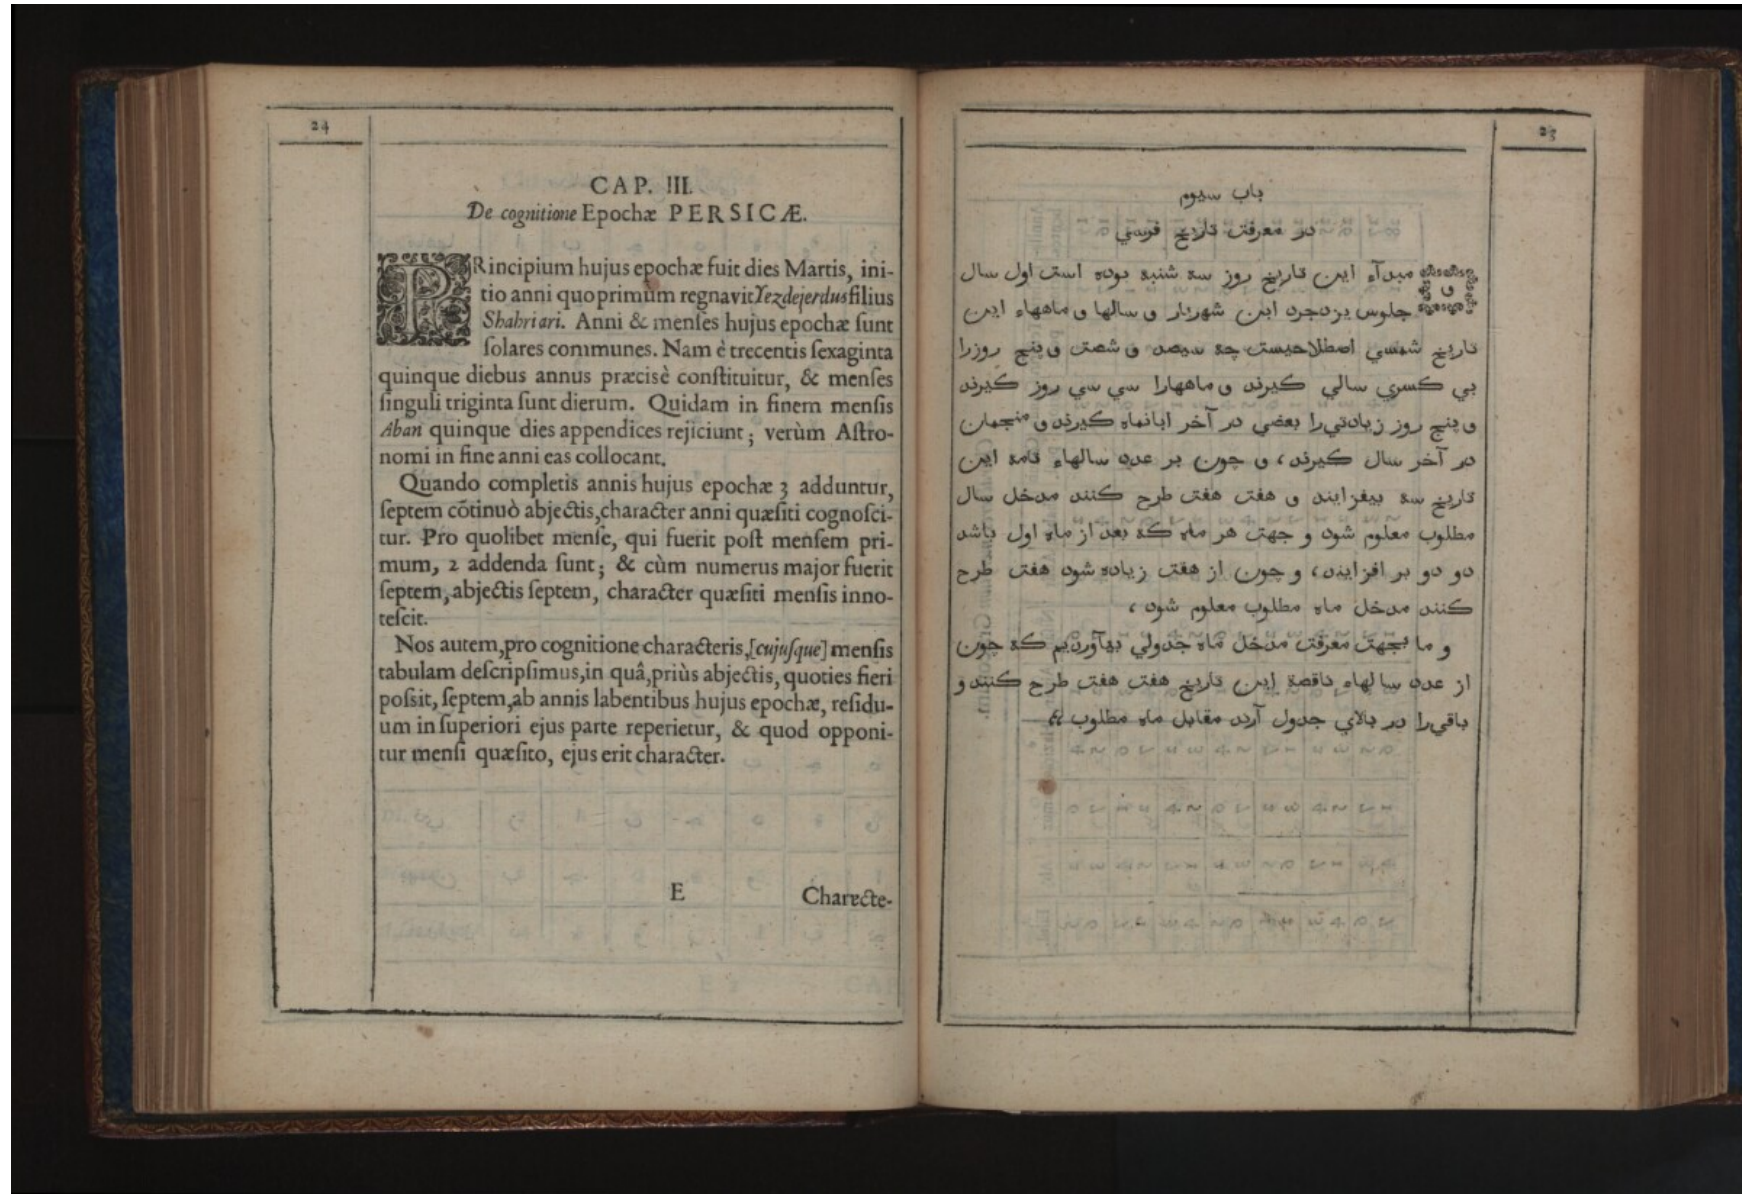 24
CAP. III.
De cognitione Epochæ PERSICÆ.
PRincipium hujus epochæ fuit dies Martis, ini-
tio anni quo primùm regnavit Yezdejerdus filius
Shahriari. Anni & menſes hujus epochæ ſunt
ſolares communes. Nam è trecentis ſexaginta
quinque diebus annus præcisè conſtituitur, & menſes
ſinguli triginta ſunt dierum. Quidam in finem menſis
Aban quinque dies appendices rejiciunt; verùm Aſtro-
nomi in fine anni eas collocant.
Quando completis annis hujus epochæ 3 adduntur,
ſeptem cõtinuò abjectis, character anni quæſiti cognoſci-
tur. Pro quolibet menſe, qui fuerit poſt menſem pri-
mum, 2 addenda ſunt; & cùm numerus major fuerit
ſeptem, abjectis ſeptem, character quæſiti menſis inno-
teſcit.
Nos autem, pro cognitione characteris, [cujuſque] menſis
tabulam deſcripſimus, in quâ, priùs abjectis, quoties fieri
poſsit, ſeptem, ab annis labentibus hujus epochæ, reſidu-
um in ſuperiori ejus parte reperietur, & quod opponi-
tur menſi quæſito, ejus erit character.
E
Characte-
23
باب سيوم
در معرفت تاريخ فرسي
و مبدآء اين تاريخ روز سه شنبه بوده است اول سال
جلوس يزدجرد ابن شهريار و سالها و ماههاء اين
تاريخ شمسي اصطلاحيست چه سيصد و شصت و پنج روزرا
بي كسري سالي كيرند و ماههارا سي سي روز كيرند
و پنج روز زيادتي را بعضي در آخر ابانماه كيرند و منجمان
در آخر سال كيرند، و چون بر عدد سالهاء تامه اين
تاريخ سه بيفزايند و هفت هفت طرح كنند مدخل سال
مطلوب معلوم شود و جهت هر ماه كه بعد از ماه اول باشد
دو دو بر افزايند، و چون از هفت زياده شود هفت طرح
كنند مدخل ماه مطلوب معلوم شود،
و ما بجهت معرفت مدخل ماه جدولي بيآورديم كه چون
از عدد سالهاء ناقصة اين تاريخ هفت هفت طرح كنند و
باقي را در بالاي جدول آرند مقابل ماه مطلوب